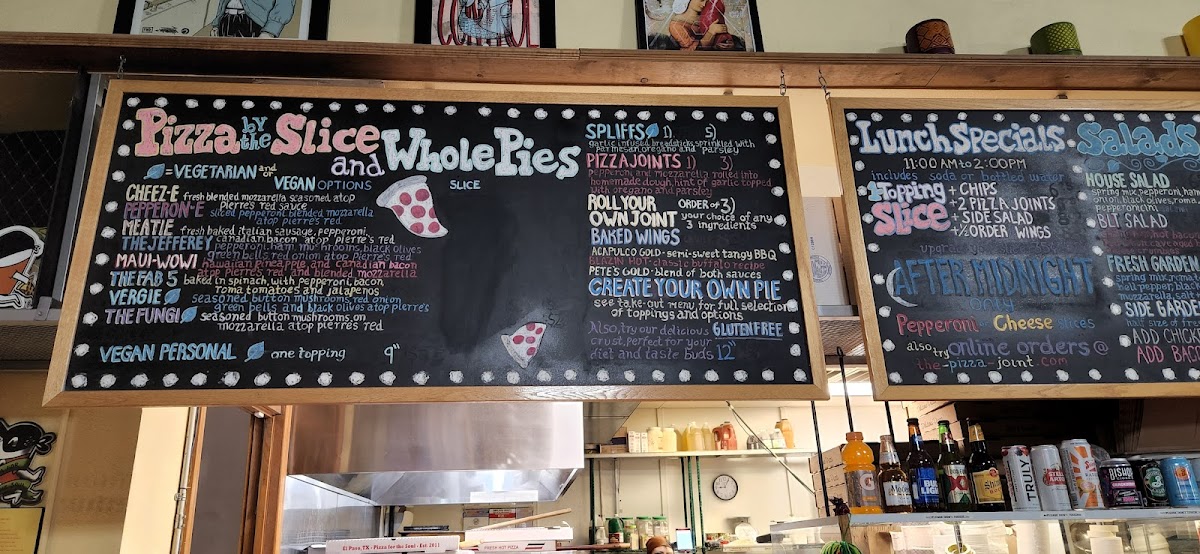 CONTROL
Pizza by the Slice
and Whole Pies
= VEGETARIAN and or
VEGAN OPTIONS
SLICE
CHEEZ-E fresh blended mozzarella seasoned atop
pierre's red sauce
PEPPERON-E sliced pepperoni, blended mozzarella
atop pierre's red
MEATIE fresh baked italian sausage, pepperoni,
canadian bacon atop pierre's red
THE JEFFEREY pepperoni, ham, mushrooms, black olives
green bells, red onion atop pierre's red
MAUI-WOWI hawaiian pineapple, and canadian bacon
atop pierre's red and blended mozzarella
THE FAB 5 baked in spinach, with pepperoni, bacon,
roma tomatoes and jalapeños
VERGIE seasoned button mushrooms, red onion
green bells and black olives atop pierre's
THE FUNGI seasoned button mushrooms, on
mozzarella atop pierre's red
VEGAN PERSONAL one topping 9"
SPLIFFS 1). 5)
garlic infused breadsticks, sprinkled with
parmesan, oregano and parsley
PIZZA JOINTS 1) 3)
pepperoni and mozzarella rolled into
homemade dough, hint of garlic topped
with oregano and parsley
ROLL YOUR
OWN JOINT
ORDER of 3)
your choice of any
3 ingredients
BAKED WINGS
ACAPULCO GOLD - semi-sweet tangy BBQ
BLAZIN HOT - classic buffalo recipe
PETE'S GOLD - blend of both sauces
CREATE YOUR OWN PIE
see take-out menu for full selection
of toppings and options
Also, try our delicious GLUTEN FREE
crust, perfect for your
diet and taste buds 12"
Lunch Specials
11:00 AM to 2:00PM
includes soda or bottled water
1 Topping
Slice
+ CHIPS
+ 2 PIZZA JOINTS
+ SIDE SALAD
+ ½ ORDER WINGS
AFTER MIDNIGHT
only
Pepperoni Cheese slices
also try online orders @
the-pizza-joint.com
Salads
HOUSE SALAD
spring mix, pepperoni, ham
onion, black olives, roma
pepperoncini
BLT SALAD
FRESH GARDEN
spring mix,
bell pepper, black
mozzarella,
SIDE GARDE
half size of fresh
ADD CHIC
ADD BAC
El Paso, TX - Pizza for the Soul - Est. 2011
FRESH HOT PIZZA
BUD
LIGHT
TRULY
BISHOP